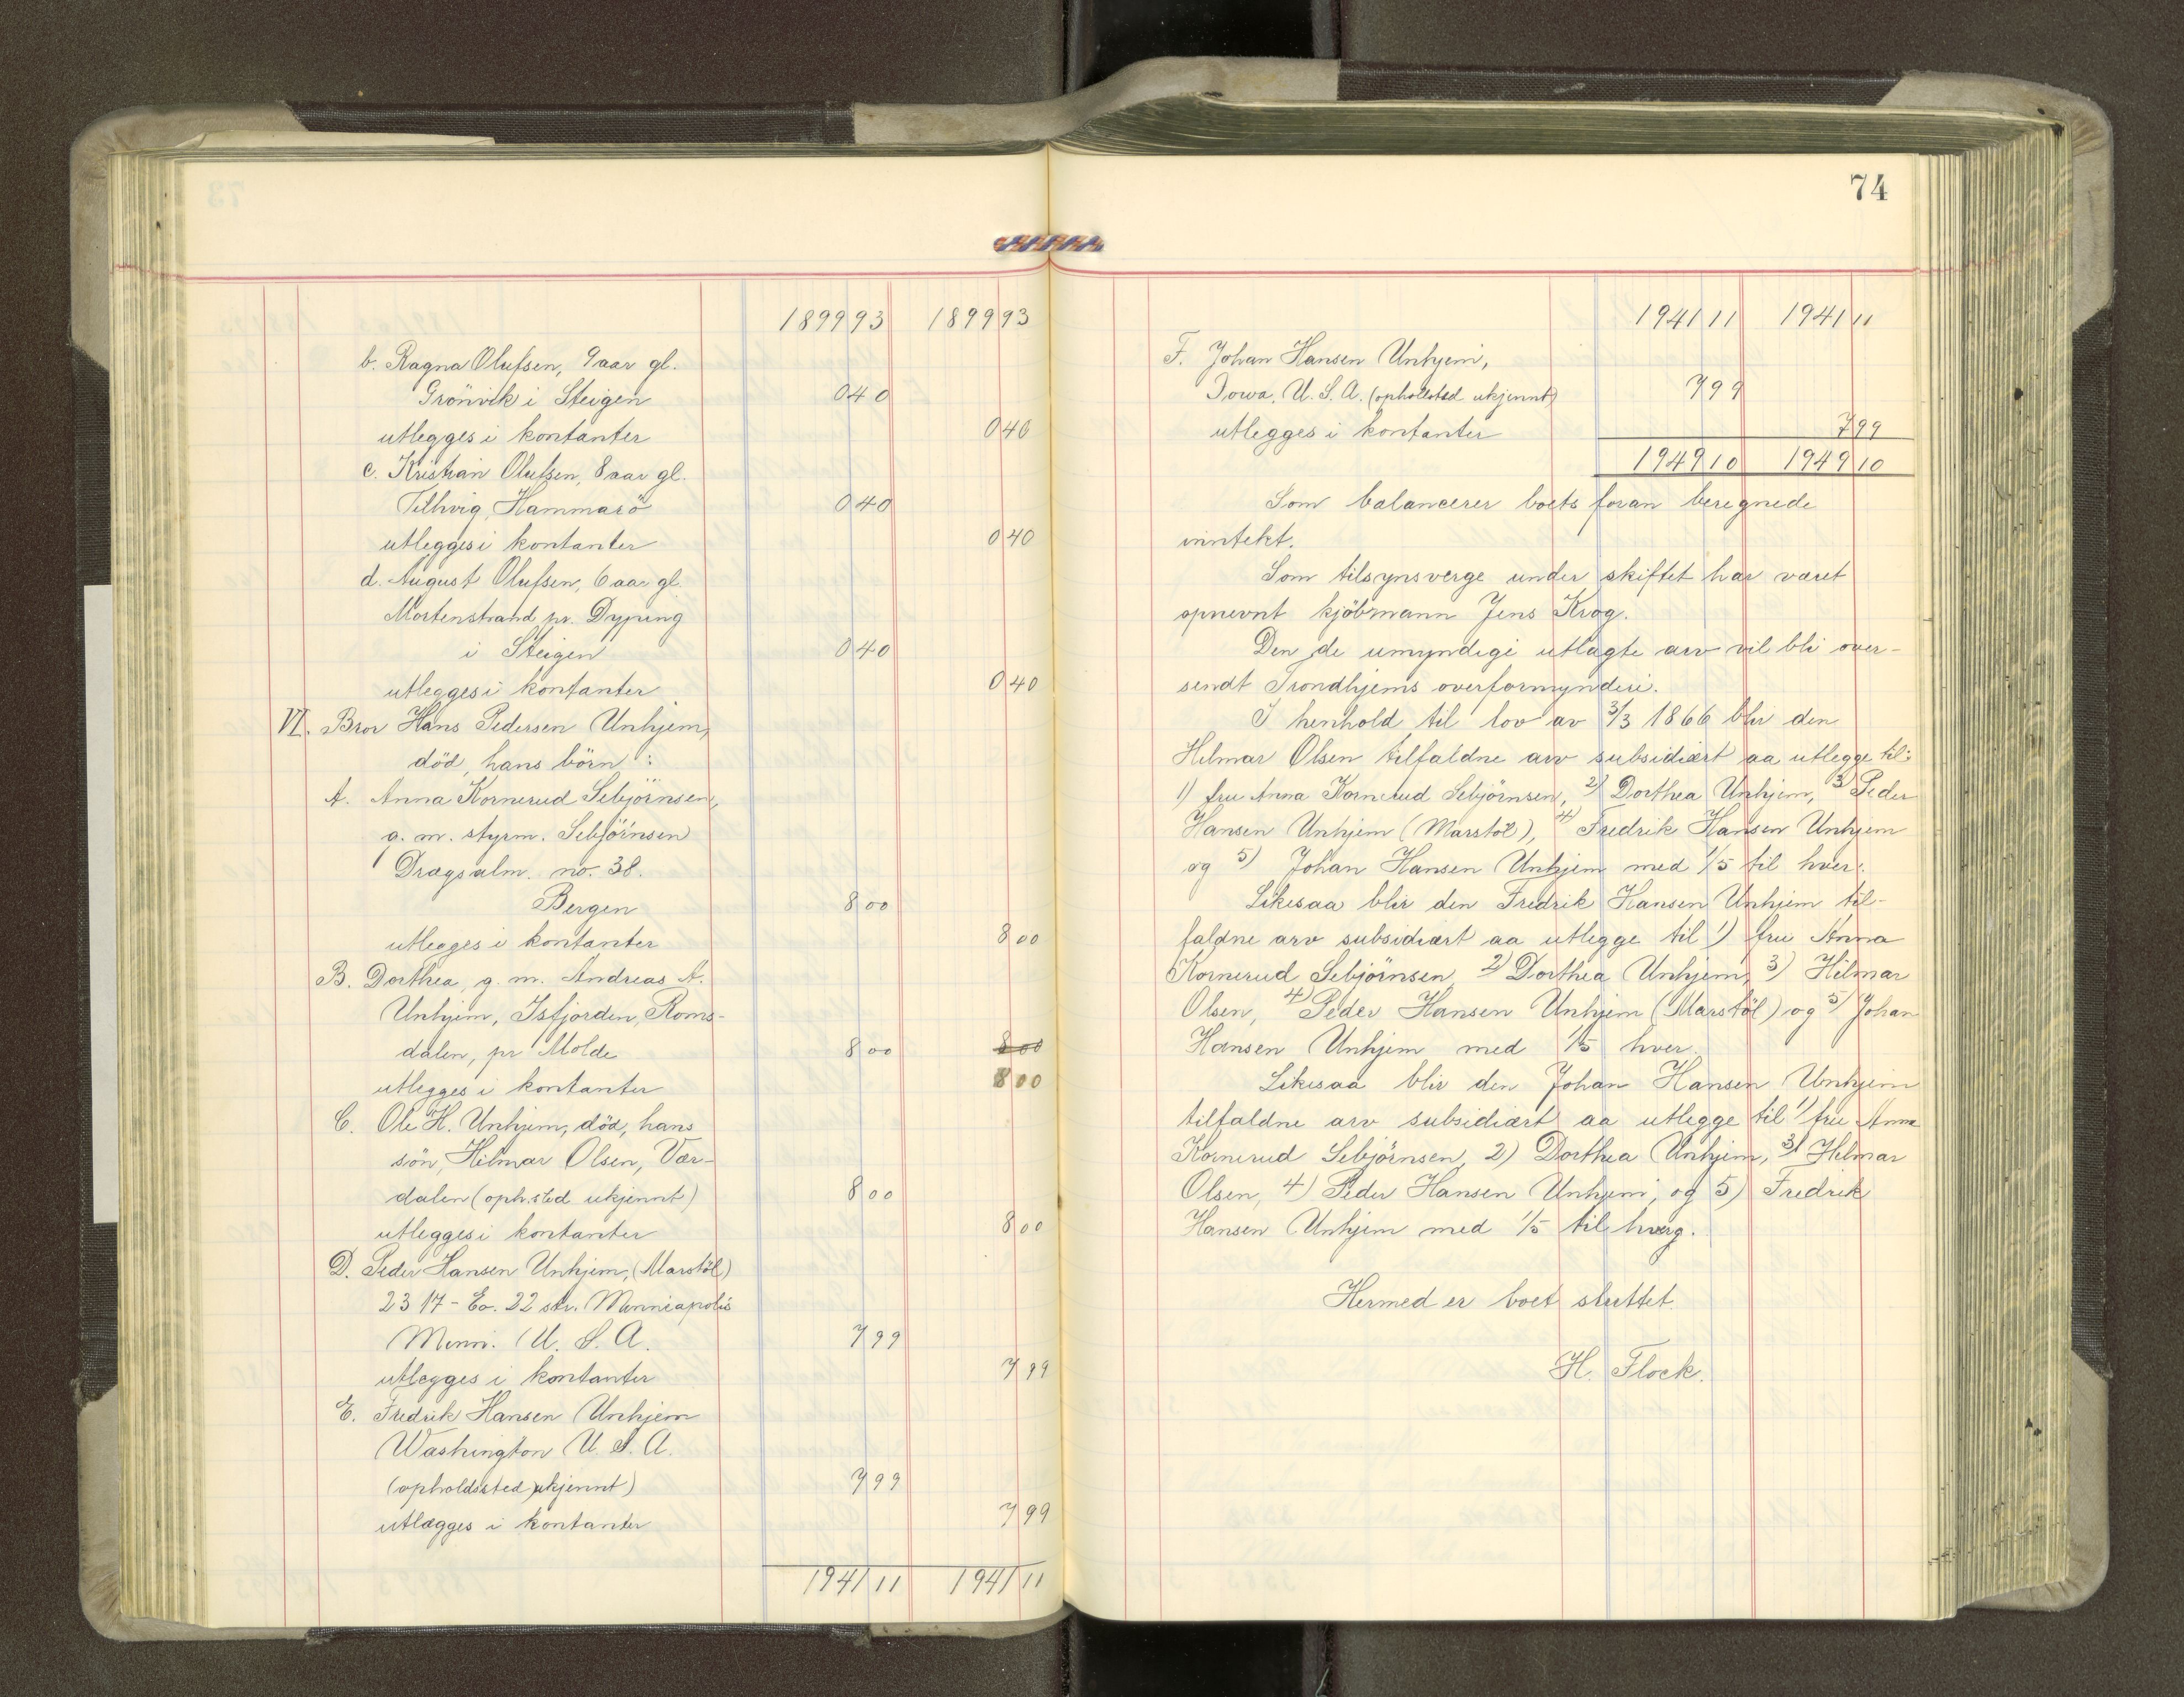 1899 93 1899 93
b. Ragna Olufsen, 9 aar gl.
Grönvik i Steigen 0 40
utlegges i kontanter 0 40
c. Kristian Olufsen, 8 aar gl.
Tilhvig, Hammarö 0 40
utlegges i kontanter 0 40
d. August Olufsen, 6 aar gl.
Mortenstrand pr. Dyping
i Steigen 0 40
utlegges i kontanter 0 40
VI. Bror Hans Pedersen Unhjem,
död, hans börn:
A. Anna Kornerud Sebjörnsen,
g. m. styrm. Sebjörnsen
Dragsalm. no. 38.
Bergen 8 00
utlegges i kontanter 8 00
B. Dorthea, g. m. Andreas A.
Unhjem, Isfjorden, Roms-
dalen, pr Molde 8 00 8 00
utlegges i kontanter 8 00
C. Ole H. Unhjem, död, hans
sön, Hilmar Olsen, Vær-
dalen (oph.sted ukjennt) 8 00
utlegges i kontanter 8 00
D. Peder Hansen Unhjem, (Marstöl)
2317 - Eo. 22 str. Minniapolis
Minn. U. S. A. 7 99
utlegges i kontanter 7 99
E. Fredrik Hansen Unhjem
Washington U. S. A.
(opholdssted ukjennt) 7 99
utlægges i kontanter 7 99
1941 11 1941 11
74
1941 11 1941 11
F. Johan Hansen Unhjem,
Iowa, U. S. A. (opholdssted ukjennt) 7 99
utlegges i kontanter 7 99
1949 10 1949 10
Som balancerer boets foran beregnede
inntekt.
Som tilsynsverge under skiftet har været
opnevnt kjöbmann Jens Krog.
Den de umyndige utlagte arv vil bli over-
sendt Trondhjems overformynderi.
I henhold til lov av 3/3 1866 blir den
Hilmar Olsen tilfaldne arv subsidiært aa utlegge til:
1) fru Anna Kornerud Sebjörnsen, 2) Dorthea Unhjem, 3) Peder
Hansen Unhjem (Marstöl), 4) Fredrik Hansen Unhjem
og 5) Johan Hansen Unhjem med 1/5 til hver.
Likesaa blir den Fredrik Hansen Unhjem til-
faldne arv subsidiært aa utlegge til 1) fru Anna
Kornerud Sebjörnsen, 2) Dorthea Unhjem, 3) Hilmar
Olsen, 4) Peder Hansen Unhjem (Marstöl) og 5) Johan
Hansen Unhjem med 1/5 hver.
Likesaa blir den Johan Hansen Unhjem
tilfaldne arv subsidiært aa utlegge til 1) fru Anna
Kornerud Sebjörnsen, 2) Dorthea Unhjem, 3) Hilmar
Olsen, 4) Peder Hansen Unhjem, og 5) Fredrik
Hansen Unhjem med 1/5 til hverg.
Hermed er boet sluttet.
H. Flock.